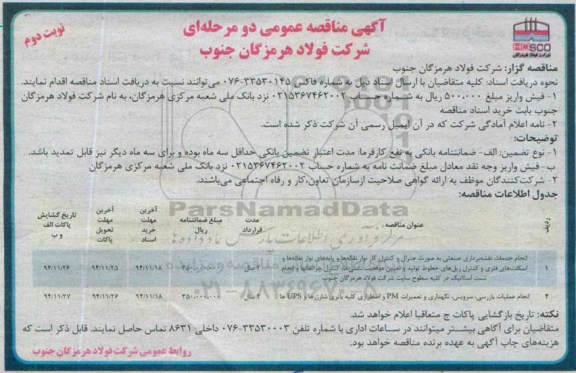 آگهی مناقصه عمومی دو مرحله‌ای
شرکت فولاد هرمزگان جنوب
نوبت دوم
HOSCO
شرکت فولاد هرمزگان جنوب
مناقصه گزار: شرکت فولاد هرمزگان جنوب
نحوه دریافت اسناد: کلیه متقاضیان با ارسال اسناد ذیل به شماره فاکس ۳۳۵۳۰۱۴۵-۰۷۶ می‌توانند نسبت به دریافت اسناد مناقصه اقدام نمایند.
۱- فیش واریز مبلغ ۵۰۰,۰۰۰ ریال به شماره حساب ۰۲۱۵۳۶۷۴۶۲۰۰۲ نزد بانک ملی شعبه مرکزی هرمزگان، به نام شرکت فولاد هرمزگان
جنوب بابت خرید اسناد مناقصه
۲- نامه اعلام آمادگی شرکت که در آن ایمیل رسمی آن شرکت ذکر شده است.
توضیحات:
۱- نوع تضمین: الف- ضمانتنامه بانکی به نفع کارفرما، مدت اعتبار تضمین بانکی حداقل سه ماه بوده و برای سه ماه دیگر نیز قابل تمدید باشد.
ب- فیش واریز وجه نقد معادل مبلغ ضمانت نامه به شماره حساب ۰۲۱۵۳۶۷۴۶۲۰۰۲ نزد بانک ملی شعبه مرکزی هرمزگان
۲- شرکت‌کنندگان موظف به ارائه گواهی صلاحیت ازسازمان تعاون، کار و رفاه اجتماعی می‌باشند.
جدول اطلاعات مناقصه:
ردیف عنوان مناقصه مدت قرارداد مبلغ ضمانتنامه ریال آخرین مهلت خرید اسناد آخرین مهلت تحویل پاکات تاریخ گشایش پاکات الف و ب
۱ انجام خدمات نقشه‌برداری صنعتی به صورت جنرال و کنترل کار نوار نقاله‌ها و پایه‌های نوار نقاله‌ها و
اسکلت‌های فلزی و کنترل ریل‌های خطوط تولید و تعیین موقعیت و انجام
تست استاتیک در کلیه سطوح سایت شرکت فولاد هرمزگان جنوب ۹۴/۱۱/۱۸ ۹۴/۱۱/۲۵ ۹۴/۱۱/۲۶
۲ انجام عملیات بازرسی، سرویس، نگهداری و تعمیرات PM و اضطراری کلیه باتری شارژرها و UPS ها ۲ سال ۳۵۰,۰۰۰,۰۰۰ ۹۴/۱۱/۱۸ ۹۴/۱۱/۲۶ ۹۴/۱۱/۲۷
نکته: تاریخ بازگشایی پاکات ج متعاقبا اعلام خواهد شد.
متقاضیان برای آگاهی بیشتر میتوانند در ساعات اداری با شماره تلفن ۳۳۵۳۰۰۰۳-۰۷۶ داخلی ۸۶۳۱ تماس حاصل نمایند. قابل ذکر است که
هزینه‌های چاپ آگهی به عهده برنده مناقصه خواهد بود.
روابط عمومی شرکت فولاد هرمزگان جنوب
ParsNamadData